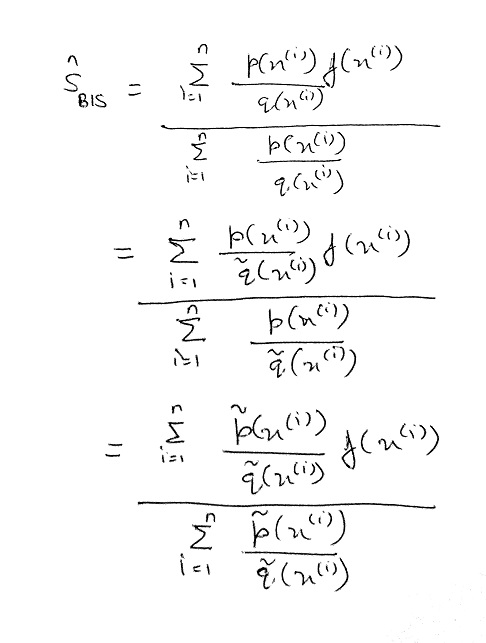 Ŝ_BIS = \frac{\sum_{i=1}^{n} \frac{p(x^{(i)})}{q(x^{(i)})} f(x^{(i)})}{\sum_{i=1}^{n} \frac{p(x^{(i)})}{q(x^{(i)})}}
= \frac{\sum_{i=1}^{n} \frac{p(x^{(i)})}{\tilde{q}(x^{(i)})} f(x^{(i)})}{\sum_{i=1}^{n} \frac{p(x^{(i)})}{\tilde{q}(x^{(i)})}}
= \frac{\sum_{i=1}^{n} \frac{\tilde{p}(x^{(i)})}{\tilde{q}(x^{(i)})} f(x^{(i)})}{\sum_{i=1}^{n} \frac{\tilde{p}(x^{(i)})}{\tilde{q}(x^{(i)})}}